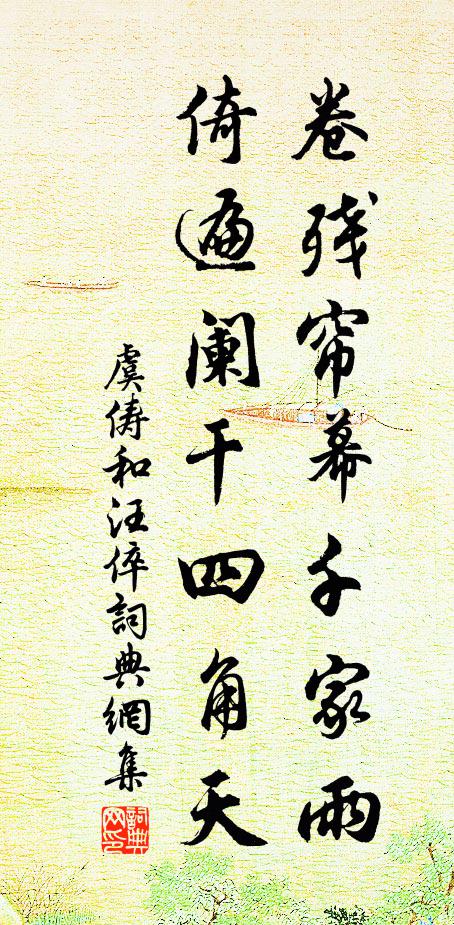 卷残帘幕千家雨
倚遍阑干四角天
虞俦和汪倅詞典網集
詞典
网印